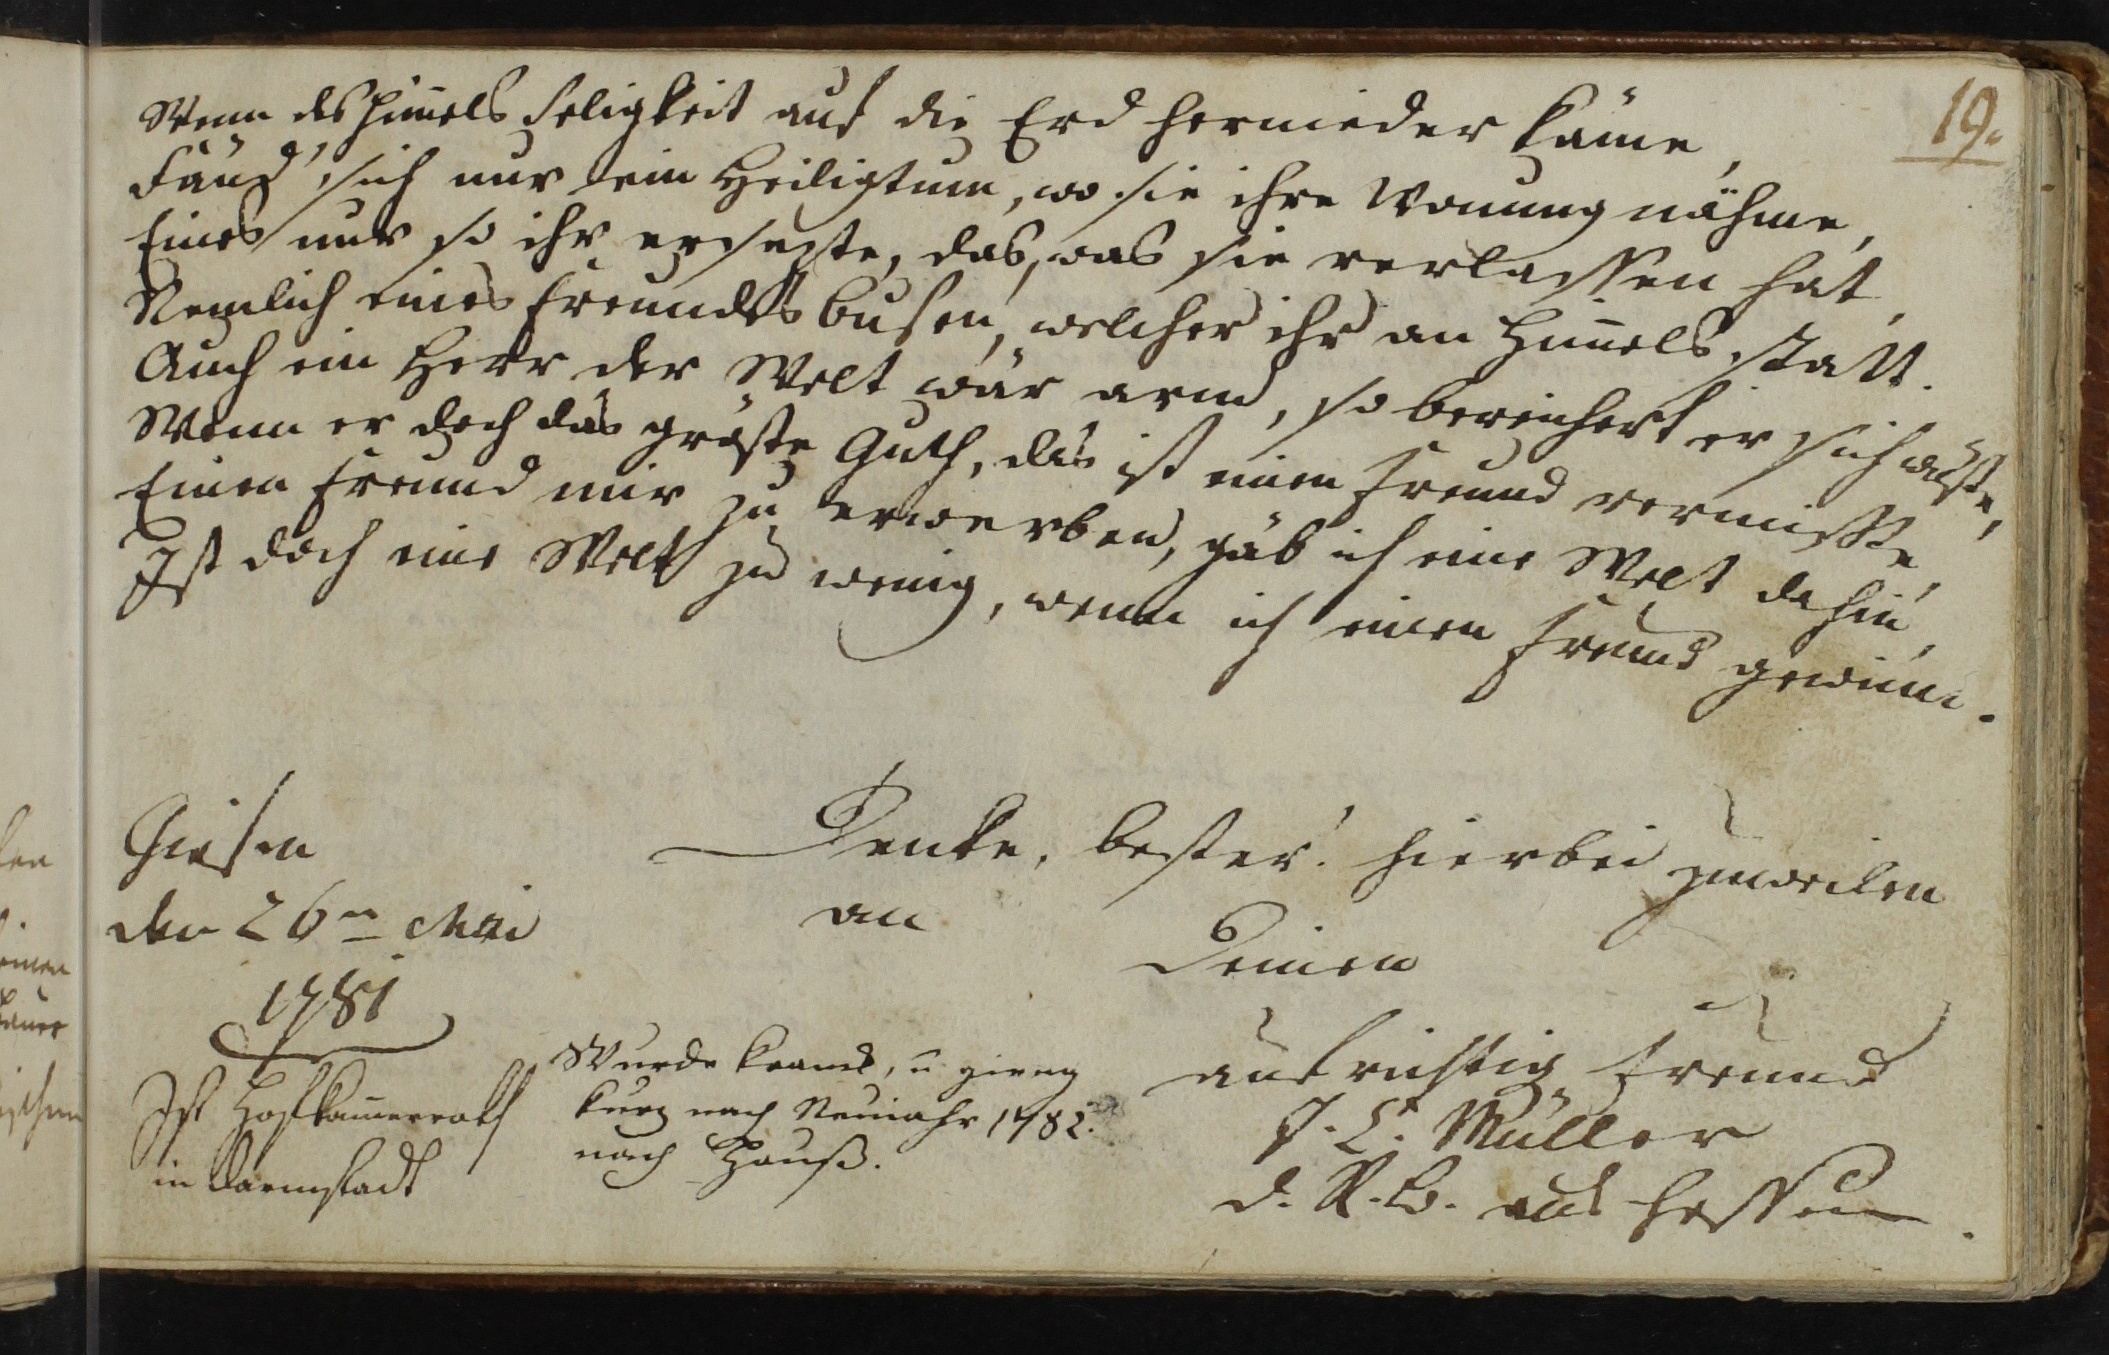 19.
Wenn des Him̅els Seligkeit auf die Erd hernieder käme,
Fänd' sich nur ein Heiligtum, wo sie ihre Wonung nähme,
Eines nur so ihr ersezte, das, was sie verlassen hat,
Nemlich eines Freundes Busen, welcher ihr an Him̅els statt.
Auch ein Herr der Welt wär arm, so bereichert er sich wüste,
Wenn er doch das gröste Guth, das ist einen Freund vermißte,
Einen Freund mir zu erwerben, gäb ich eine Welt dahin,
Ist doch eine Welt zu wenig, wenn ich einen Freund gewinn.
Giesen
den 26n Mai
1781
Denke, bester! hierbei zuweilen
an
Deinen
aufrichtig Freund
J. C. Müller
d. R. B. aus Hessen.
Ist Hofkam̅errath
in Darmstadt
Wurde krank, u gieng
kurz nach Neuiahr 1782.
nach Hauß.